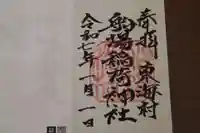 奉拝 東海村
馬場稲荷神社
令和七年一月一日